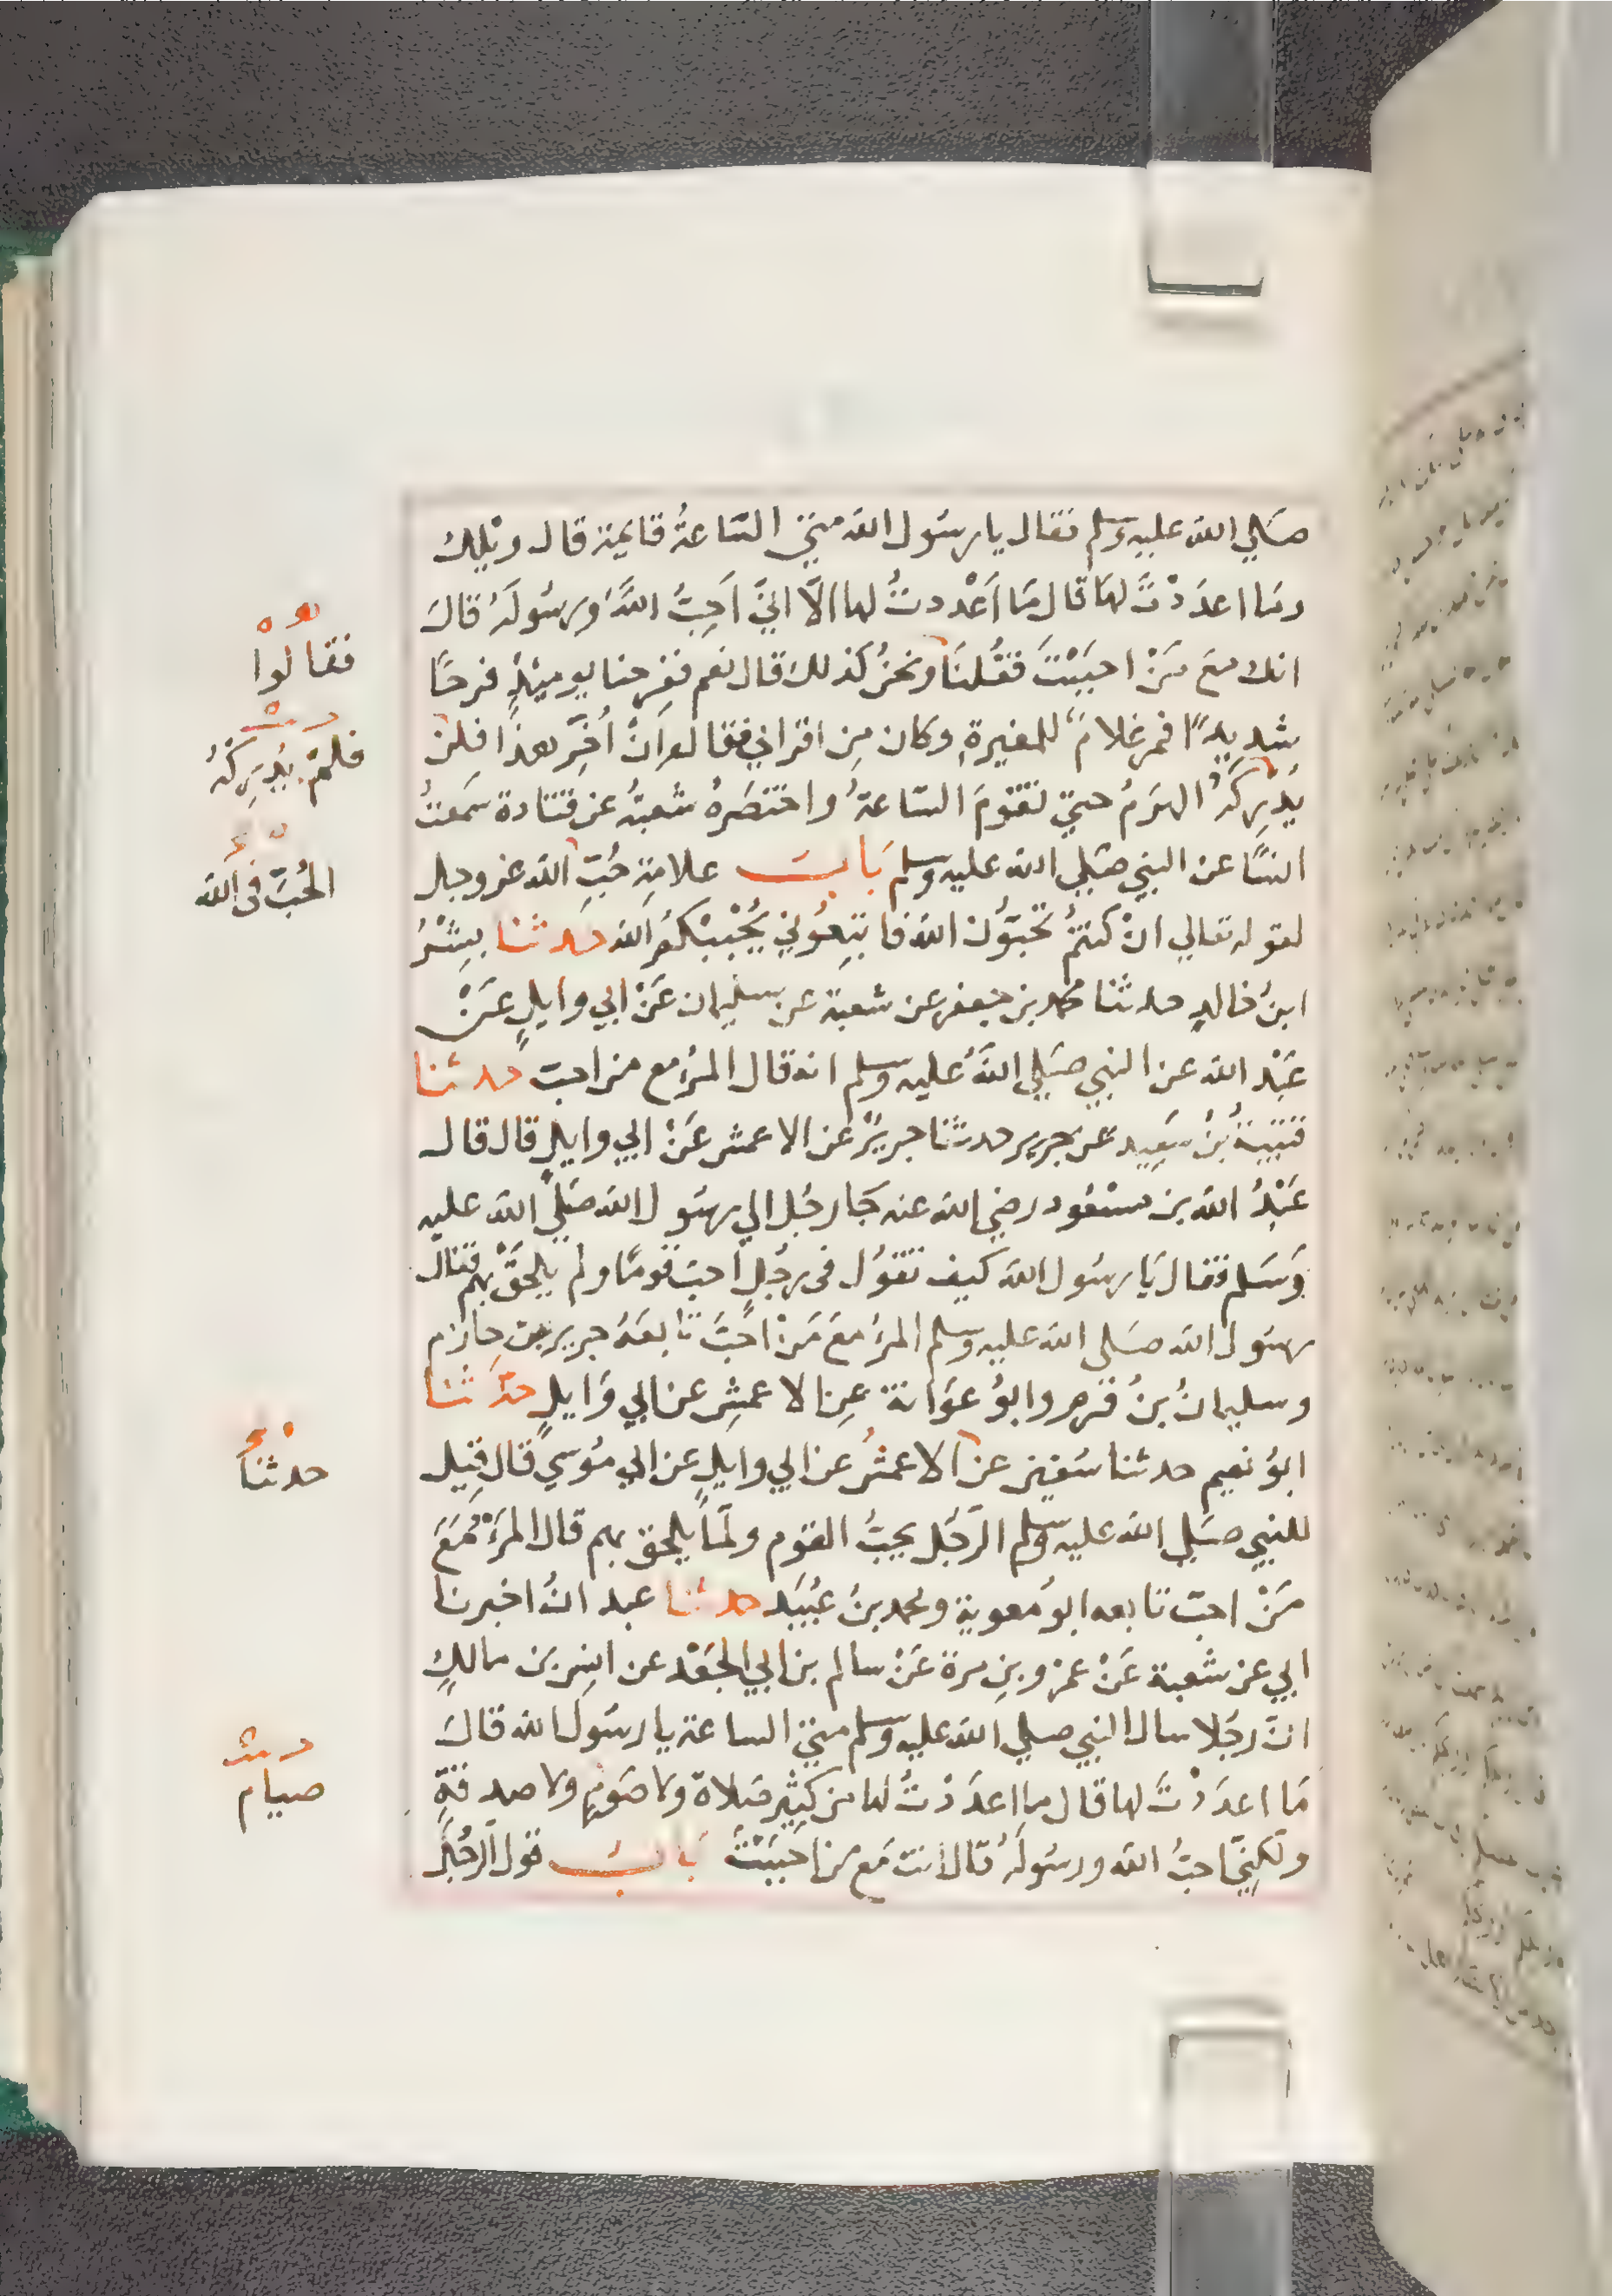 صَلي الله عليه وسلم فقال يا رسُول الله متي السّاعةُ قايمة قال ويْلك
وما اعدَدْتَّ لها قال مَا أعْددتُ لها الّا انيّ اَحِبُّ اللهَ وَرسُولَهُ قالَ
انك معَ مَنْ احبَبْتَ فقُلنَا ونحنُ كذلك قال نعم ففرِحنا يوميْذٍ فرحًا
شديدًا فمر غلامٌ للمغيرةِ وكان مِن اقراني فقالوا انْ اُخِّر هذا فلن
يُدرِكَهُ الهرَمُ حتيّ تقوْمَ السّاعةُ واختصَرهُ شعبةُ عن قتادة سَمعتُ
انسًا عن النبي صَلي الله عليه وسلم بَابُ علامةِ حُبّ الله عز وجل
لقوله تعالي انْ كنتمُ تحبّوُن الله فاتبِعوُني يُحْبِبْكمُ الله حدثنا بِشْرُ
ابنُ خالدٍ حدثنا محمد بن جعفر عن شعبة عن سليمان عَنْ ابي وايلٍ عَنْ
عَبْد الله عن النبي صَلي اللهُ عليه وسلم انه قال المرْءُ مع من احبّ حدثنا
قتيبةُ بنُ سَعِيد عن جرير حدثنا جريرٌ عن الاعمش عَنْ ابي وايلٍ قال قال
عَبْدُ الله بن مسعُود رضي الله عنه جَا رجُل الي رسُول الله صَلّي الله عليه
وَسَلم فقال يَا رسُول الله كيف تقوُل في رجُلٍ احبّ قومًا ولم يلحَقْ بهم فقال
رسُول الله صَلي الله عليه وسلم المرْءُ معَ مَنْ احَبَّ تابعَهُ جرير بن حازم
وسليمانُ بنُ قرم وابوُ عوَانة عِن الاعمشِ عن ابي وَايلٍ حدّثنا
ابوُ نعيم حدثنا سُفين عن الاعمشُ عن ابي وايلٍ عن ابي موُسي قال قِيل
للنبي صَلي الله عليه وسلم الرّجُل يحبُّ القوم ولمّا يلحق بهم قال المرْءُ مَعَ
مَنْ احبّ تابعه ابوُ معوية ومحمد بنُ عُبَيد حدثنا عبدانُ اخبرنا
ابي عن شعبة عَنْ عمرو بنِ مرة عَنْ سالم بن ابي الجَعْد عن انسِ بن مالكٍ
انّ رجُلا سال النبي صلي الله عليه وسلم متي الساعة يا رسُول الله قالَ
مَا اعدَدْتَّ لها قال ما اعدَدْتُ لها من كثيْر صَلاة ولا صَوْمٍ ولا صدقةٍ
ولكِنّي احبُّ الله ورسُولَهُ قال انت مَع من احبَبْتَ بَابُ قول الرجُل
فقالوا
فلمْ يُدرِكْهُ
الحُبّ فى الله
حدثنا
صيام